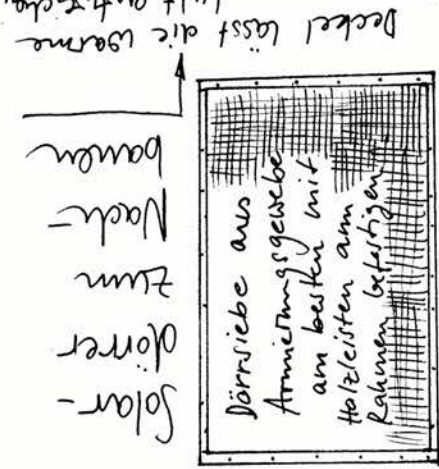 Solar-
dörrer
zum
Nach-
bauen
Dörrsiebe aus
Armierungsgewebe
am besten mit
Holzleisten am
Rahmen befestigen
Deckel lässt die warme
Luft